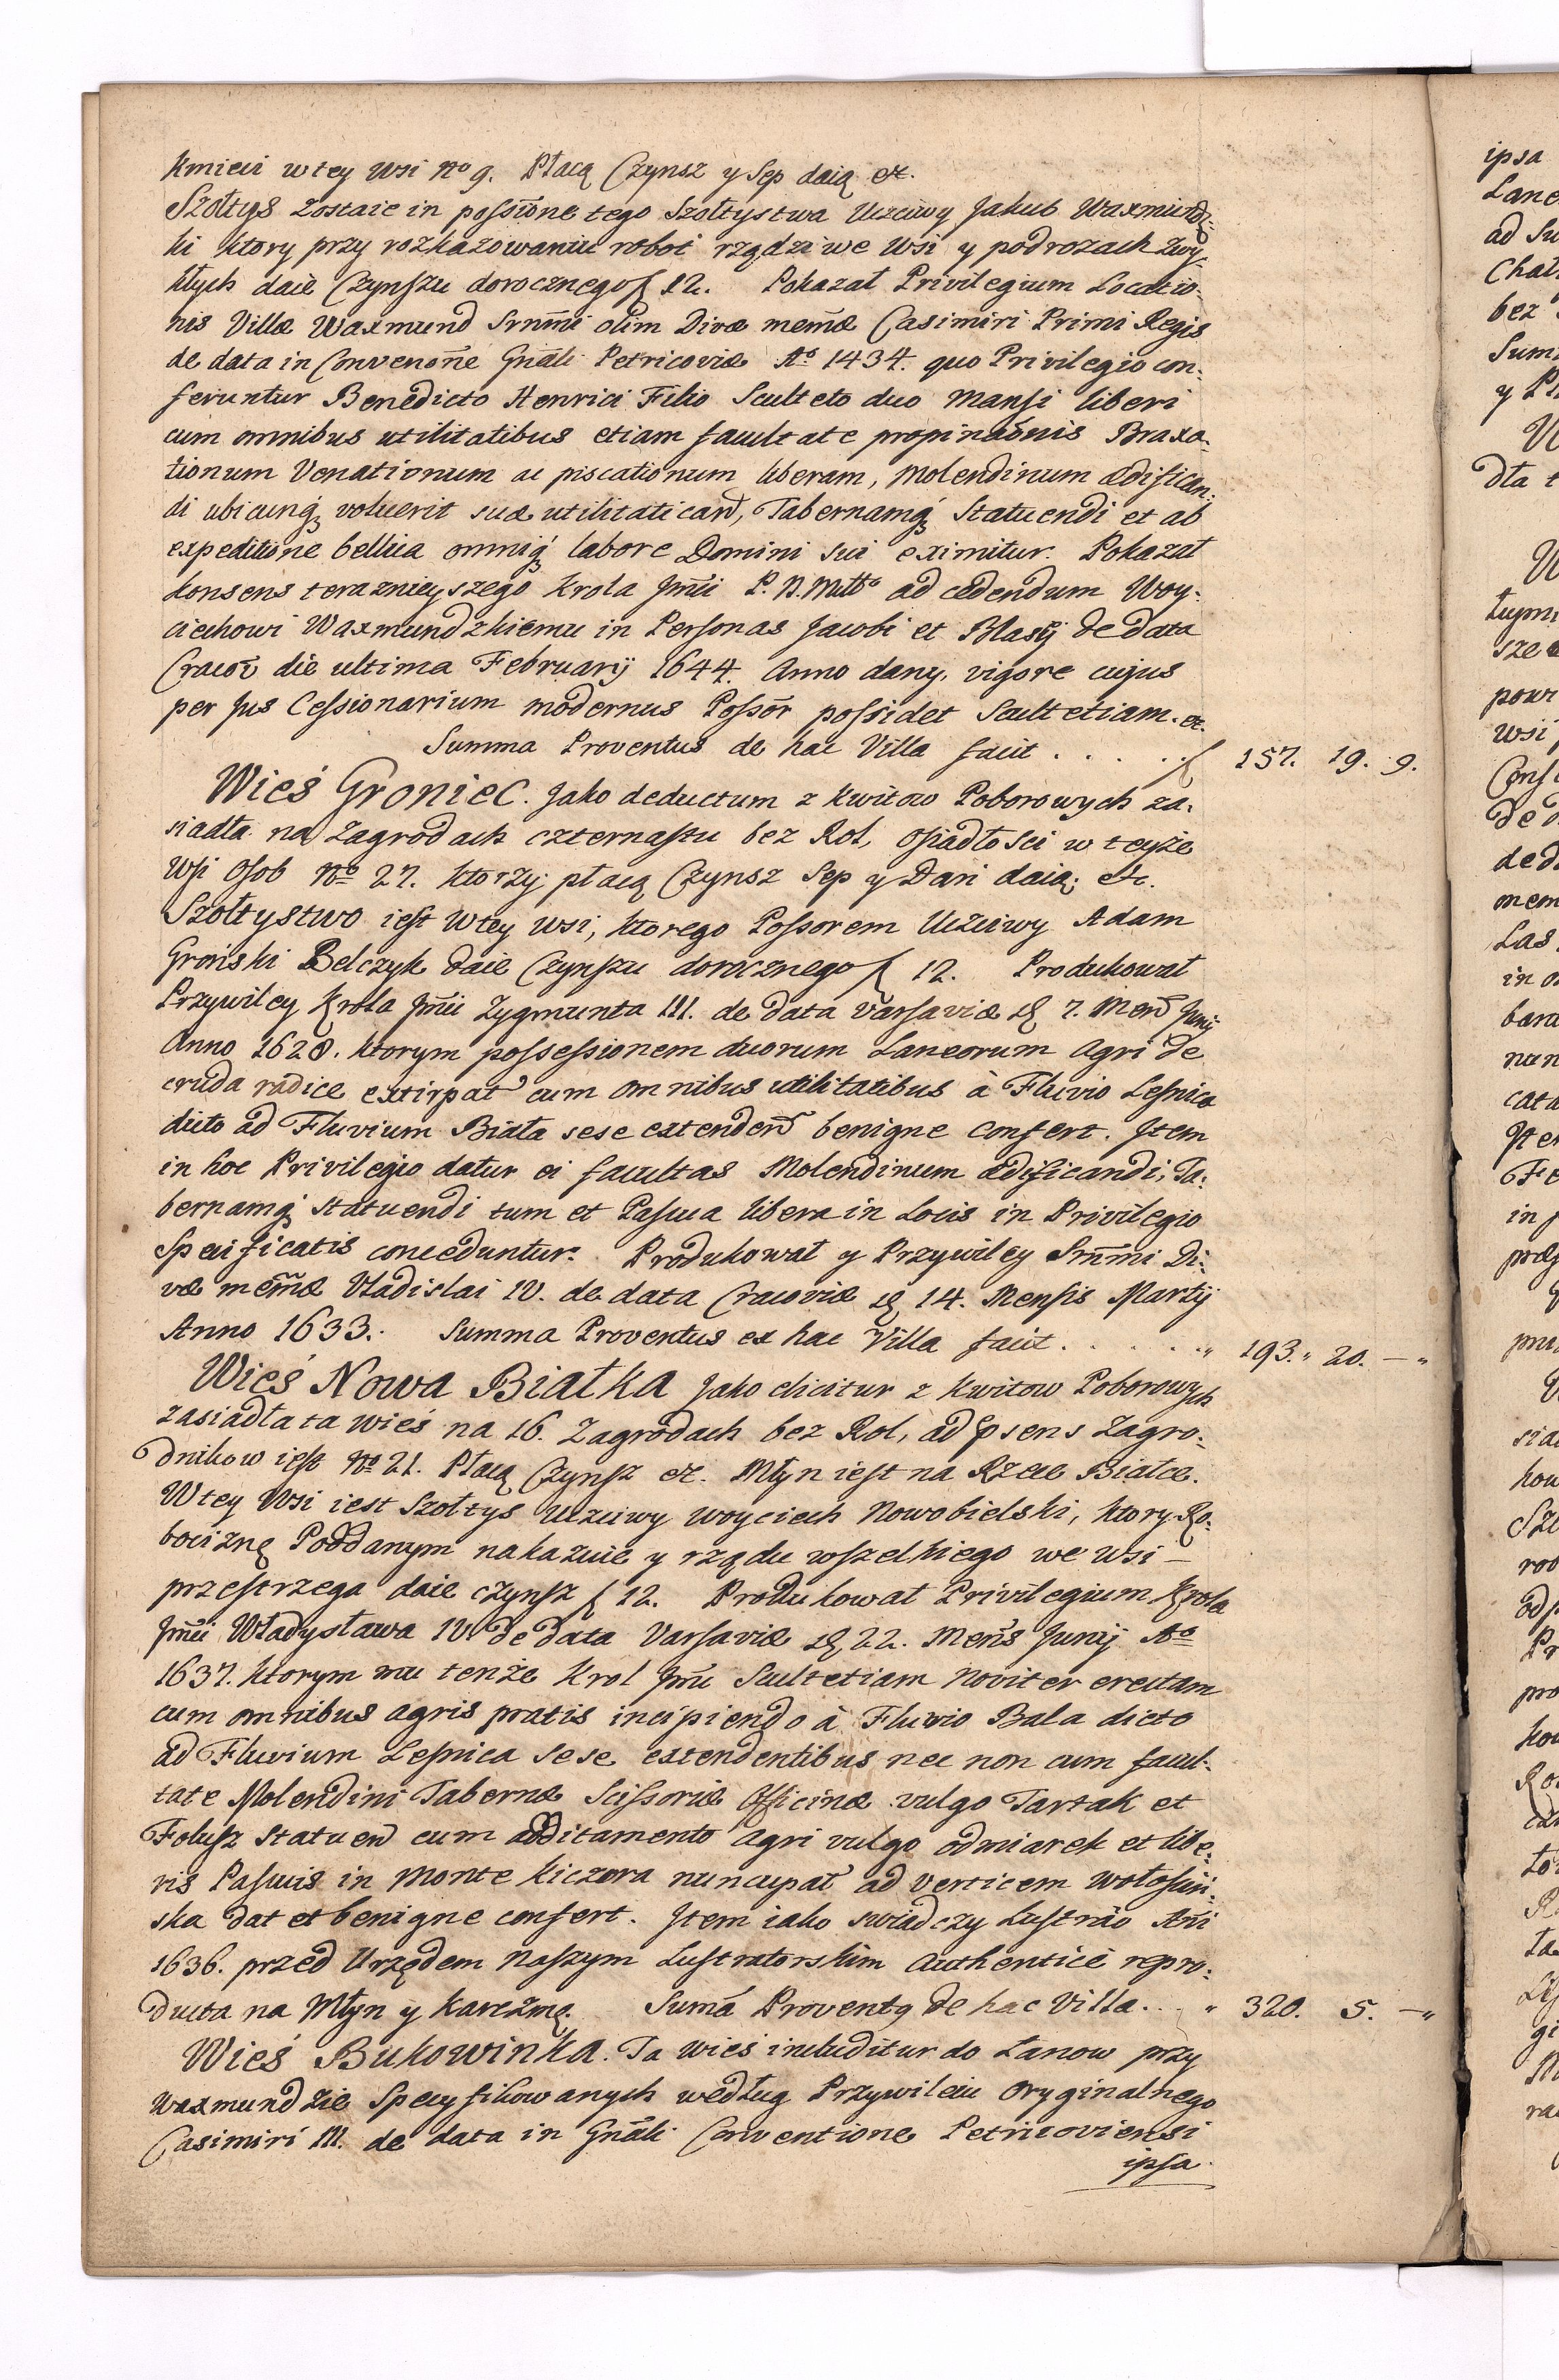 Kmieci w tey Wsi No 9. Płacą Czynsz y Sep daią etc.
Szołtys zostaie in possione tego Szołtystwa Uczciwy Jakub Waxmundz:
ki ktory przy rozkazowaniu robot rządzi we Wsi y podrozach zwy:
kłych daie Czynszu dorocznego f 12. Pokazał Privilegium Locatio:
nis Villæ Waxmund Srnmi olim Divæ memæ Casimiri Primi Regis
de data in Convenone Gnali Petricoviæ Ao 1434. quo Privilegio con:
feruntur Benedicto Henrici Filio Sculteto duo Mansi liberi
cum omnibus utilitatibus etiam facultate propinaonis Braxa:
tionum Venationum ac piscationum liberam, Molendinum ædifican:
di ubicunq voluerit suæ utilitati card, Tabernamq Statuendi et ab
expeditione bellica omniq labore Domini sui eximitur. Pokazał
konsens teraznieyszego Krola Jmci P. N. Miłło ad cedendum Woy:
ciechowi Waxmundzkiemu in Personas Jacobi et Blasij de data
Cracov die ultima Februarij 1644. Anno dany, vigore cujus
per Jus Cessionarium modernus Possor possidet Scultetiam. etc.
Summa Proventus de hac Villa facit . . . . . f 157. 19. 9.
Wieś Groniec. Jako deductum z Kwitow Poborowych za:
siadła na Zagrodach czternastu bez Rol, Osiadłosci w teyże
Wsi Osob No 27. ktorzy płacą Czynsz Sep y Dań daią; etc.
Szołtystwo iest w tey Wsi, ktorego Possorem Uczciwy Adam
Groński Belczyk daie Czynszu dorocznego f 12. Produkował
Przywiley Krola Jmci Zygmunta III. de data Varsaviæ d 7. Mens Junij
Anno 1628. ktorym possessionem duorum Laneorum agri de
cruda radice extirpat cum omnibus utilitatibus à Fluvio Lesnica
dicto ad Fluvium Biała sese extendend benigne confert. Item
in hoc Privilegio datur ei facultas Molendinum ædificandi, Ta:
bernamq statuendi tum et Pascua libera in Locis in Privilegio
Specificatis conceduntur. Produkował y Przywiley Srnmi Di:
væ memæ Vladislai IV. de data Cracoviæ d 14. Mensis Martij
Anno 1633. Summa Proventus ex hac Villa facit . . . . . " 193. " 20. — "
Wieś Nowa Białka Jako elicitur z Kwitow Poborowych
zasiadła ta wieś na 16. Zagrodach bez Rol, ad psens Zagro:
dnikow iest No 21. Płacą Czynsz etc. Młyn iest na Rzece Białce.
W tey Wsi iest Szołtys Uczciwy Woyciech Nowobielski, ktory Ro:
bociznę Poddanym nakazuie y rządu wszelkiego we Wsi —
przestrzega daie czynsz f 12. Produkował Privilegium Krola
Jmci Władysława IV. de data Varsaviæ d 22. Mens Junij Ao
1637. ktorym mu tenże Krol Jmc Scultetiam Noviter erectam
cum omnibus agris pratis incipiendo à Fluvio Bala dicto
ad Fluvium Lesnica sese extendentibus nec non cum facul:
tate Molendini Tabernæ Scissoriæ Officinæ vulgo Tartak et
Folusz statuend cum additamento agri vulgo odmiarek et libe:
ris Pascuis in Monte Kiczora nuncupat ad verticem Wołoszyń:
ska dat et benigne confert. Item iako swiadczy Lustrao Ani
1636. przed Urzędem Naszym Lustratorskim Authenticè repro:
ducta na Młyn y Karczmę. Suma Proventq de hac Villa. . " 320. 5. — "
Wieś Bukowinka. Ta wieś includitur do Łanow przy
Waxmundzie Specyfikowanych według Przywileiu Oryginalnego
Casimiri III. de data in Gnali Conventione Petricoviensi
ipsa